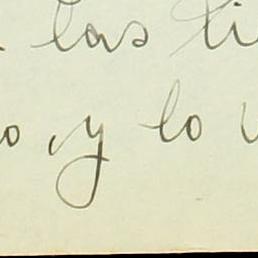 las ti
o, y lo